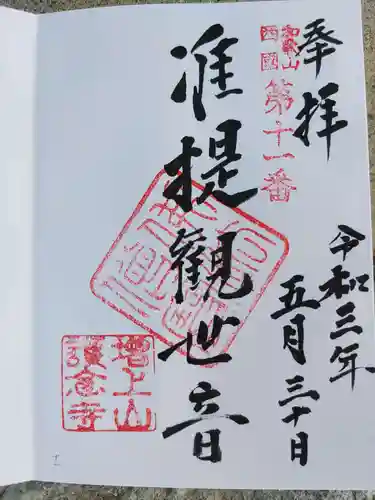 奉拝
西國
第十一番
准提観世音
令和三年
五月三十日
増上山
護念寺